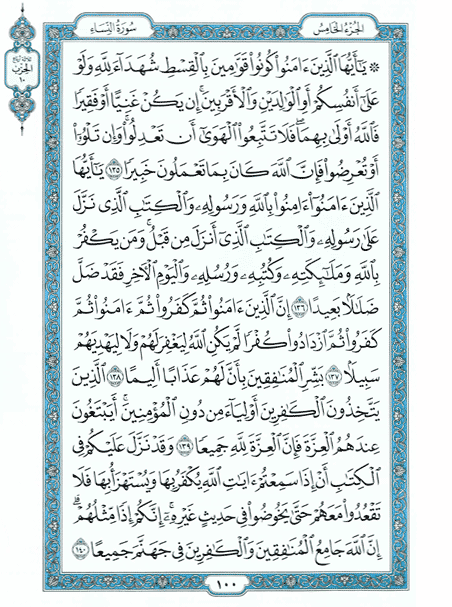 الجزء الخامس
سورة النساء
۞ يَٰٓأَيُّهَا ٱلَّذِينَ ءَامَنُوا۟ كُونُوا۟ قَوَّٰمِينَ بِٱلْقِسْطِ شُهَدَآءَ لِلَّهِ وَلَوْ
عَلَىٰٓ أَنفُسِكُمْ أَوِ ٱلْوَٰلِدَيْنِ وَٱلْأَقْرَبِينَ ۚ إِن يَكُنْ غَنِيًّا أَوْ فَقِيرًا
فَٱللَّهُ أَوْلَىٰ بِهِمَا ۖ فَلَا تَتَّبِعُوا۟ ٱلْهَوَىٰٓ أَن تَعْدِلُوا۟ ۚ وَإِن تَلْوُۥٓا۟
أَوْ تُعْرِضُوا۟ فَإِنَّ ٱللَّهَ كَانَ بِمَا تَعْمَلُونَ خَبِيرًا ١٣٥ يَٰٓأَيُّهَا
ٱلَّذِينَ ءَامَنُوٓا۟ ءَامِنُوا۟ بِٱللَّهِ وَرَسُولِهِۦ وَٱلْكِتَٰبِ ٱلَّذِى نَزَّلَ
عَلَىٰ رَسُولِهِۦ وَٱلْكِتَٰبِ ٱلَّذِىٓ أَنزَلَ مِن قَبْلُ ۚ وَمَن يَكْفُرْ
بِٱللَّهِ وَمَلَٰٓئِكَتِهِۦ وَكُتُبِهِۦ وَرُسُلِهِۦ وَٱلْيَوْمِ ٱلْءَاخِرِ فَقَدْ ضَلَّ
ضَلَٰلًۢا بَعِيدًا ١٣٦ إِنَّ ٱلَّذِينَ ءَامَنُوا۟ ثُمَّ كَفَرُوا۟ ثُمَّ ءَامَنُوا۟ ثُمَّ
كَفَرُوا۟ ثُمَّ ٱزْدَادُوا۟ كُفْرًا لَّمْ يَكُنِ ٱللَّهُ لِيَغْفِرَ لَهُمْ وَلَا لِيَهْدِيَهُمْ
سَبِيلًۢا ١٣٧ بَشِّرِ ٱلْمُنَٰفِقِينَ بِأَنَّ لَهُمْ عَذَابًا أَلِيمًا ١٣٨ ٱلَّذِينَ
يَتَّخِذُونَ ٱلْكَٰفِرِينَ أَوْلِيَآءَ مِن دُونِ ٱلْمُؤْمِنِينَ ۚ أَيَبْتَغُونَ
عِندَهُمُ ٱلْعِزَّةَ فَإِنَّ ٱلْعِزَّةَ لِلَّهِ جَمِيعًا ١٣٩ وَقَدْ نَزَّلَ عَلَيْكُمْ فِى
ٱلْكِتَٰبِ أَنْ إِذَا سَمِعْتُمْ ءَايَٰتِ ٱللَّهِ يُكْفَرُ بِهَا وَيُسْتَهْزَأُ بِهَا فَلَا
تَقْعُدُوا۟ مَعَهُمْ حَتَّىٰ يَخُوضُوا۟ فِى حَدِيثٍ غَيْرِهِۦٓ ۚ إِنَّكُمْ إِذًا مِّثْلُهُمْ ۗ
إِنَّ ٱللَّهَ جَامِعُ ٱلْمُنَٰفِقِينَ وَٱلْكَٰفِرِينَ فِى جَهَنَّمَ جَمِيعًا ١٤٠
١٠٠
الحزب
١٠